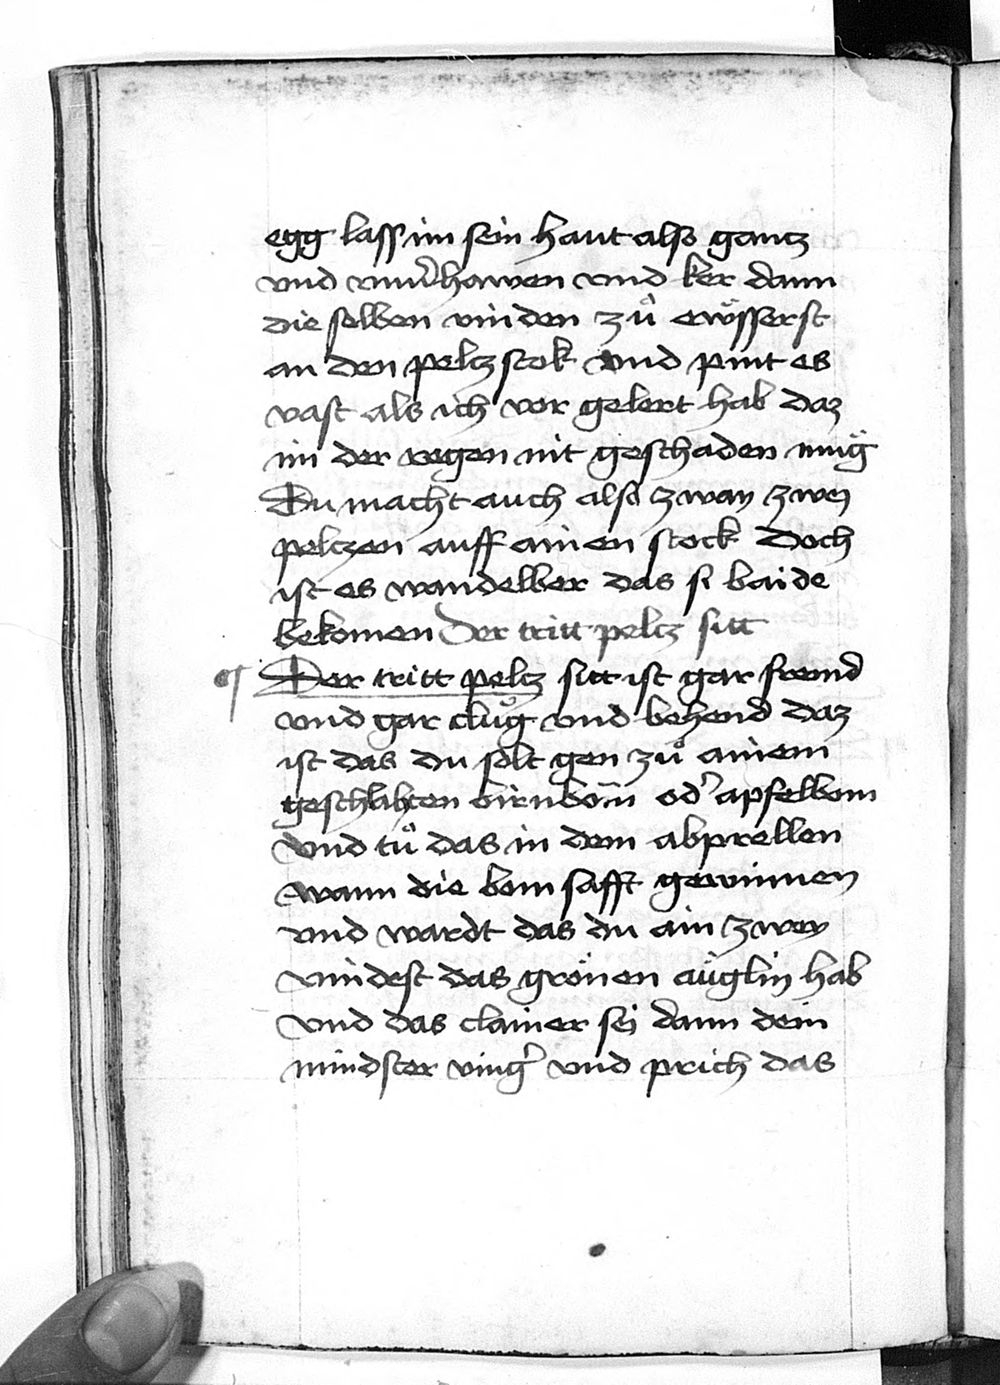 egg lass im sein haut also gantz
vnd vnuͤhawen vnd ker dann
die selben rinden zuͦ ewͤsserst
an den peltz stok vnd pint es
vast als ich vor gelert hab daz
im der regen nit geschaden muͤg
Du macht auch also zway zwey
peltzen auff ainen stock Doch
ist es wandelber das si baide
bekomen Der tritt peltz sitt
¶ Der tritt peltz sitt ist gar fremd
vnd gar cluͦg vnd behend daz
ist das du solt gen zuͦ ainem
geschlahten birnbom̄ od' apfelbom
vnd tuͦ das in dem abprellen
wann die bom safft gewinnen
vnd wardt das du ain zwey
vindest das groͤnen aüglin hab
vnd das clainer sej dann dein
mindster ving' vnd prich das